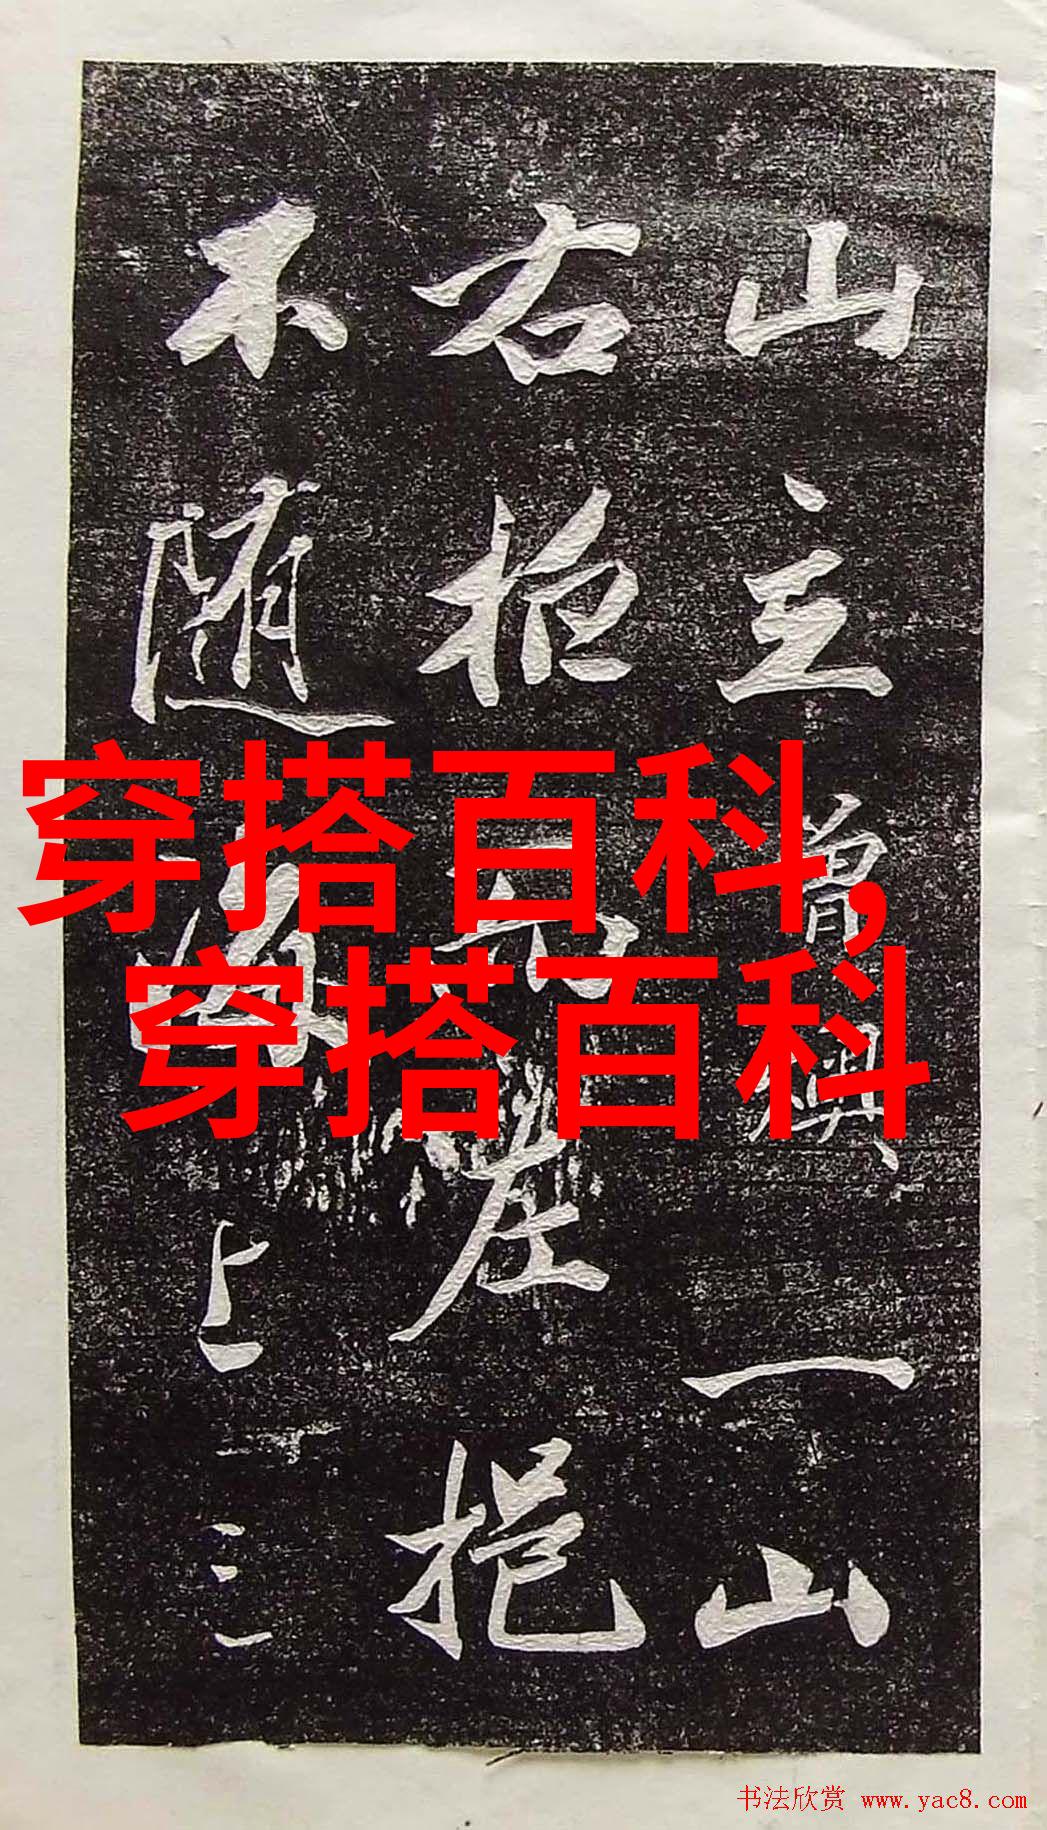 山主曾與一山
右拒
左挹
不随
上三
穿搭百科,
穿搭百科
书法欣赏 www.yac8.com